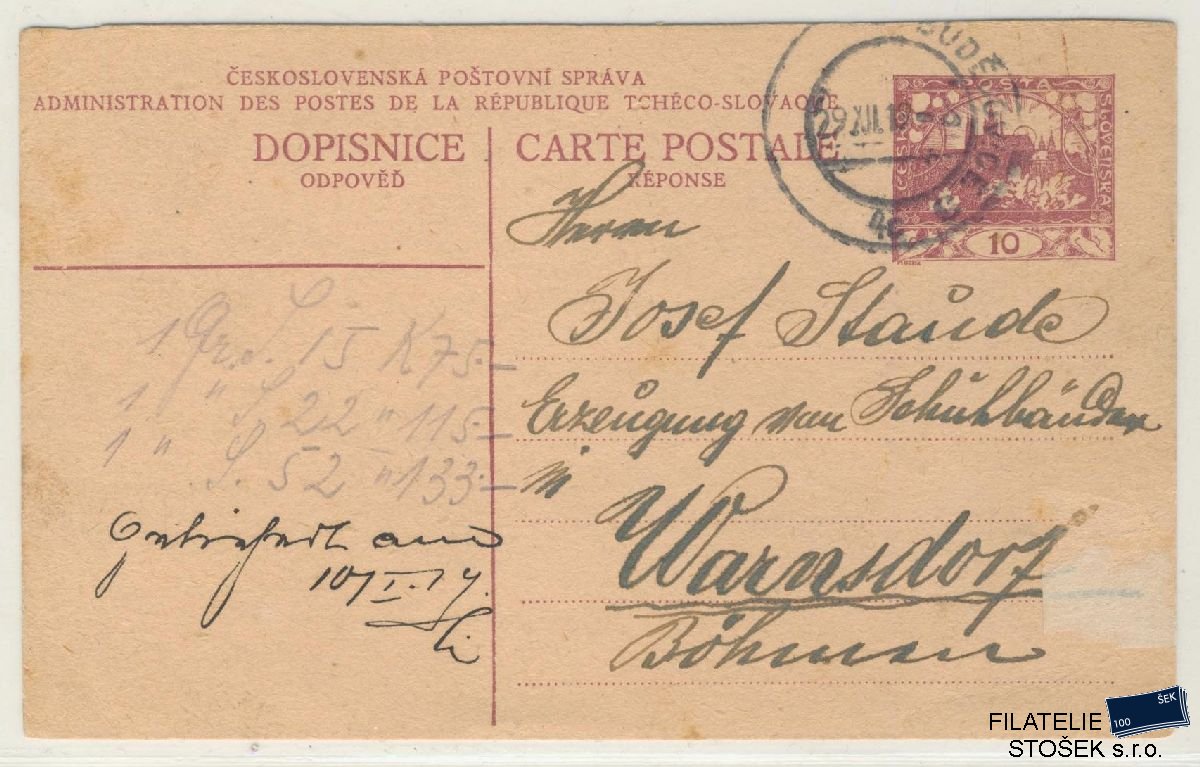 ČESKOSLOVENSKÁ POŠTOVNÍ SPRÁVA
ADMINISTRATION DES POSTES DE LA RÉPUBLIQUE TCHÉCO-SLOVAQUE
DOPISNICE
ODPOVĚĎ
CARTE POSTALE
RÉPONSE
29 XII.
4a
POŠTA
ČESKO
SLOVENSKÁ
10
Herrn
Josef Staude
Erzeugung von Schuhbänder
in
Warnsdorf
Böhmen
1 Gr. S. 15 K 75.–
1 " S. 22 " 115.–
1 " S. 52 " 133.–
am
10/I.
FILATELIE
STOŠEK s.r.o.
100
ŠEK